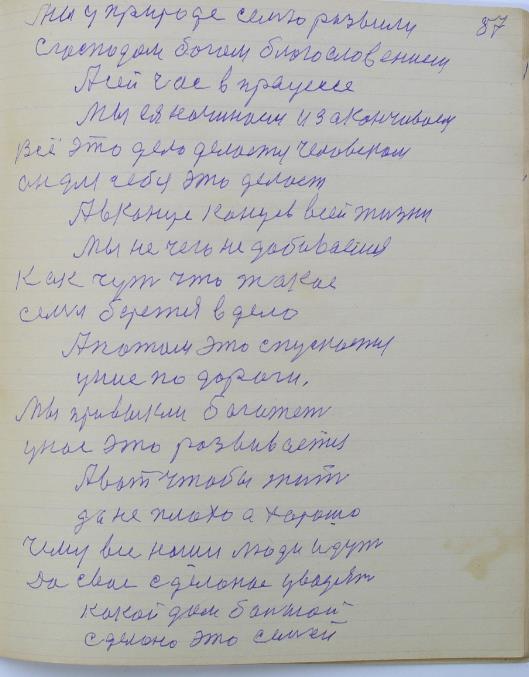 87
Мы у природе семю розвили
с господом богом благословением
А сей час в працессе
Мы ея начинаем и заканчиваем
Всё это дело делается человеком
он для себя это делает
А вконце концев всей жизни
Мы не чего не добиваемся
Как чут что такое
семя берется в дело
А потом это спускается
униз по дороги.
Мы привыкли богатет
унас это розвивается
А вот чтобы жит
да не плохо а хорошо
Чему все наши люди идут
Да свое сделоное увидят
какой дом большой
сделоно это семей